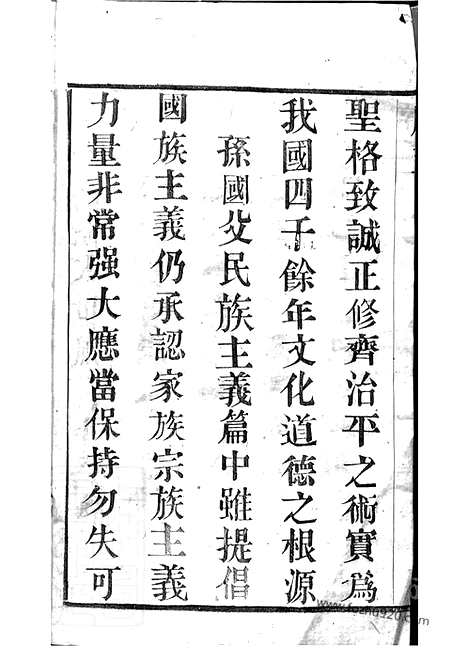 聖格致誠正修齊治平之術實爲
我國四千餘年文化道德之根源
孫國父民族主義篇中雖提倡
國族主義仍承認家族宗族主義
力量非常强大應當保持勿失可